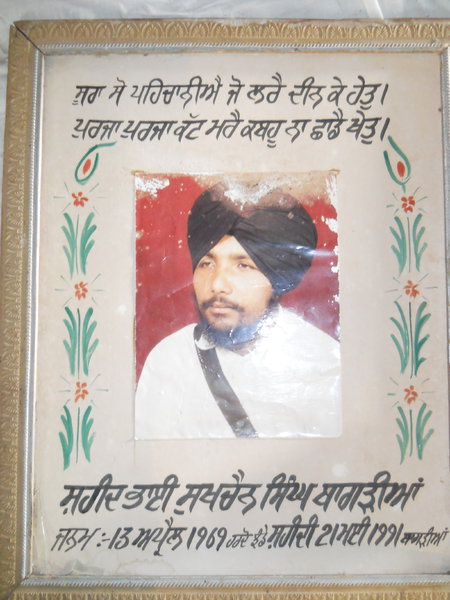 ਸੂਰਾ ਸੋ ਪਹਿਚਾਨੀਐ ਜੋ ਲਰੈ ਦੀਨ ਕੇ ਹੇਤੁ।
ਪੁਰਜਾ ਪੁਰਜਾ ਕੱਟ ਮਰੈ ਕਬਹੂ ਨਾ ਛਾਡੈ ਖੇਤੁ।
ਸ਼ਹੀਦ ਭਾਈ ਸੁਖਚੈਨ ਸਿੰਘ ਬਾਗੜੀਆਂ
ਜਨਮ :-13 ਅਪ੍ਰੈਲ ੧੯੬੧ ਸ਼ਹੀਦੀ 21 ਮਈ ੧੯੯੧ ਬਾਗੜੀਆਂ